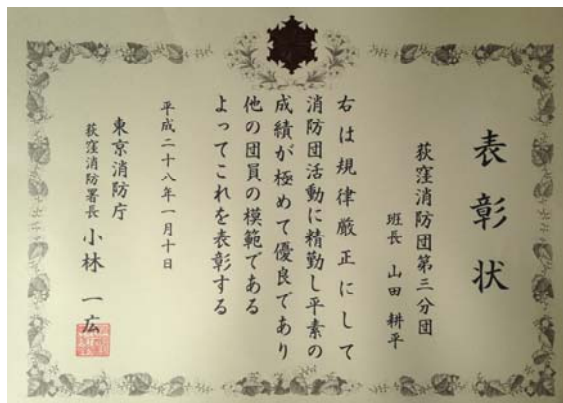 表彰状
荻窪消防団第三分団
班長 山田 耕平
右は規律厳正にして
消防団活動に精勤し平素の
成績が極めて優良であり
他の団員の模範である
よってこれを表彰する
平成二十八年一月十日
東京消防庁
荻窪消防署長 小林 一広